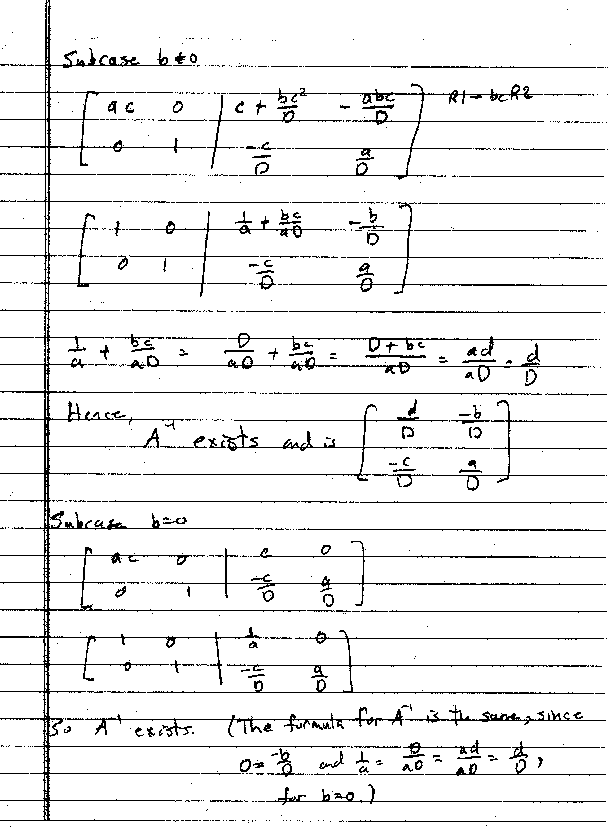 Subcase b≠0
[ ac 0 | c + bc²/D - abc/D ] R1 - bcR2
[ 0 1 | -c/D a/D ]
[ 1 0 | 1/a + bc/aD -b/D ]
[ 0 1 | -c/D a/D ]
1/a + bc/aD = D/aD + bc/aD = D + bc/aD = ad/aD = d/D
Hence,
A⁻¹ exists and is [ d/D -b/D ]
[ -c/D a/D ]
Subcase b=0
[ ac 0 | c 0 ]
[ 0 1 | -c/D a/D ]
[ 1 0 | 1/a 0 ]
[ 0 1 | -c/D a/D ]
So A⁻¹ exists. (The formula for A⁻¹ is the same, since
0 = -b/D and 1/a = D/aD = ad/aD = d/D,
for b=0.)